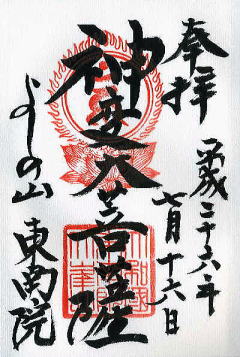 奉拝
平成二十六年
七月十六日
神変大菩薩
よしの山
東南院